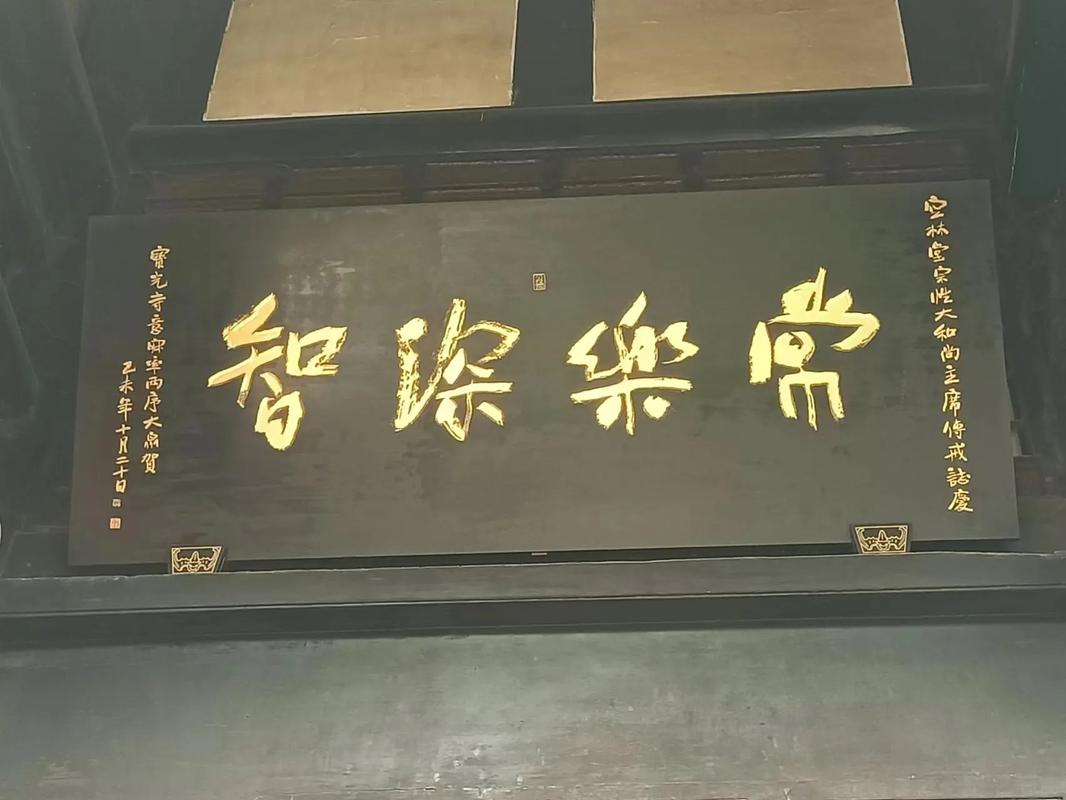 空林堂宗性大和尚主席傳戒誌慶
常樂深智
寶光寺意寂率两序大衆賀
乙未年十月二十日